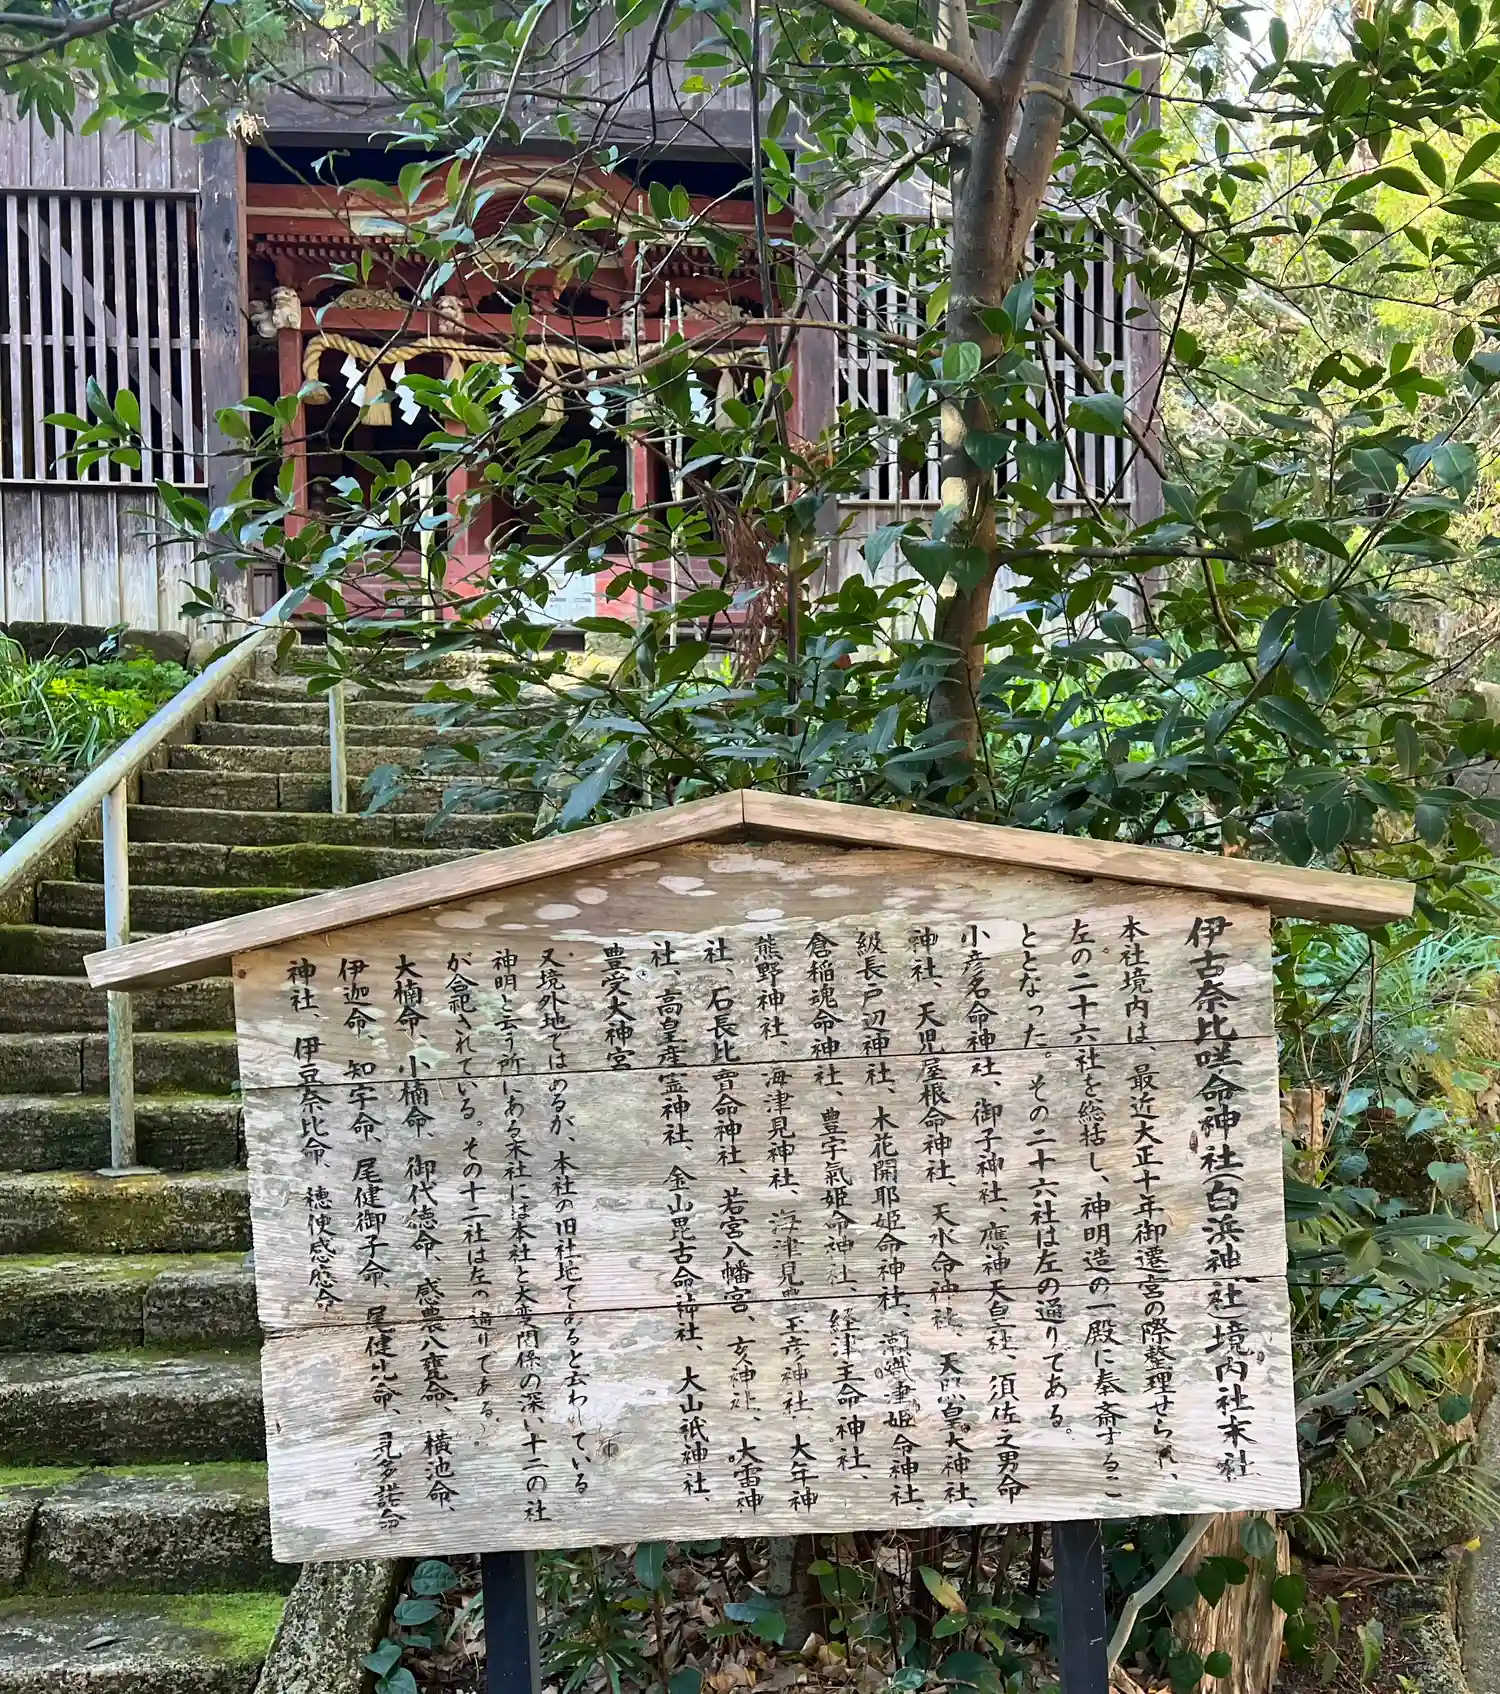 伊古奈比咩命神社(白浜神社)境内社末社
本社境内は、最近大正十年御遷宮の際整理せられ、
左の二十六社を総括し、神明造の一殿に奉斎するこ
ととなった。その二十六社は左の通りである。
小彦名命神社、御子神社、應神天皇社、須佐之男命
神社、天児屋根命神社、天水命神社、天照皇大神社、
級長戸辺神社、木花開耶姫命神社、瀬織津姫命神社、
倉稲魂命神社、豊宇氣姫命神社、経津主命神社、
熊野神社、海津見神社、海津見豊玉彦神社、大年神
社、石長比賣命神社、若宮八幡宮、亥神社、大雷神
社、高皇産霊神社、金山毘古命神社、大山祇神社、
豊受大神宮
又境外地ではあるが、本社の旧社地であると云われている
神明と云う所にある末社には本社と大変関係の深い十二の社
が合祀されている。その十二社は左の通りである。
大楠命、小楠命、御代徳命、感農八甕命、横池命、
伊迦命、知宇命、尾健御子命、尾健比命、見多諾命
神社、伊豆奈比命、穂便感應命